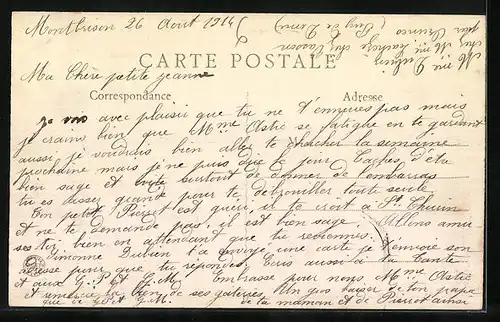 Montbrison 26 Aout 1914
CARTE POSTALE
Ma Chère petite Jeanne
Correspondance
Adresse
Je vois avec plaisir que tu ne t'ennuies pas mais
je crains bien que Mme Astic se fatigue en te gardant
aussi je voudrais bien aller te chercher la semaine
prochaine mais je ne puis dire le jour Taches d'être
bien sage et évite surtout de donner de l'embarras
tu es assez grande pour te débrouiller toute seule.
Ton petit Pierrot est guéri, il te croit à St Thurin
et ne te demande pas, il est bien sage. Allons amuse
toi bien en attendant que tu reviennes.
Simonne Dubien t'a envoyé une carte je t'envoie son
adresse pour que tu répondes. Ecris aussi à ta tante
et aux G.P. et G.M. Embrasse pour nous Mme Astic
et remercie la bien de ses gateries Un gros baiser de ton papa
que de G.P. et G.M. de ta maman et de Pierrot ainsi